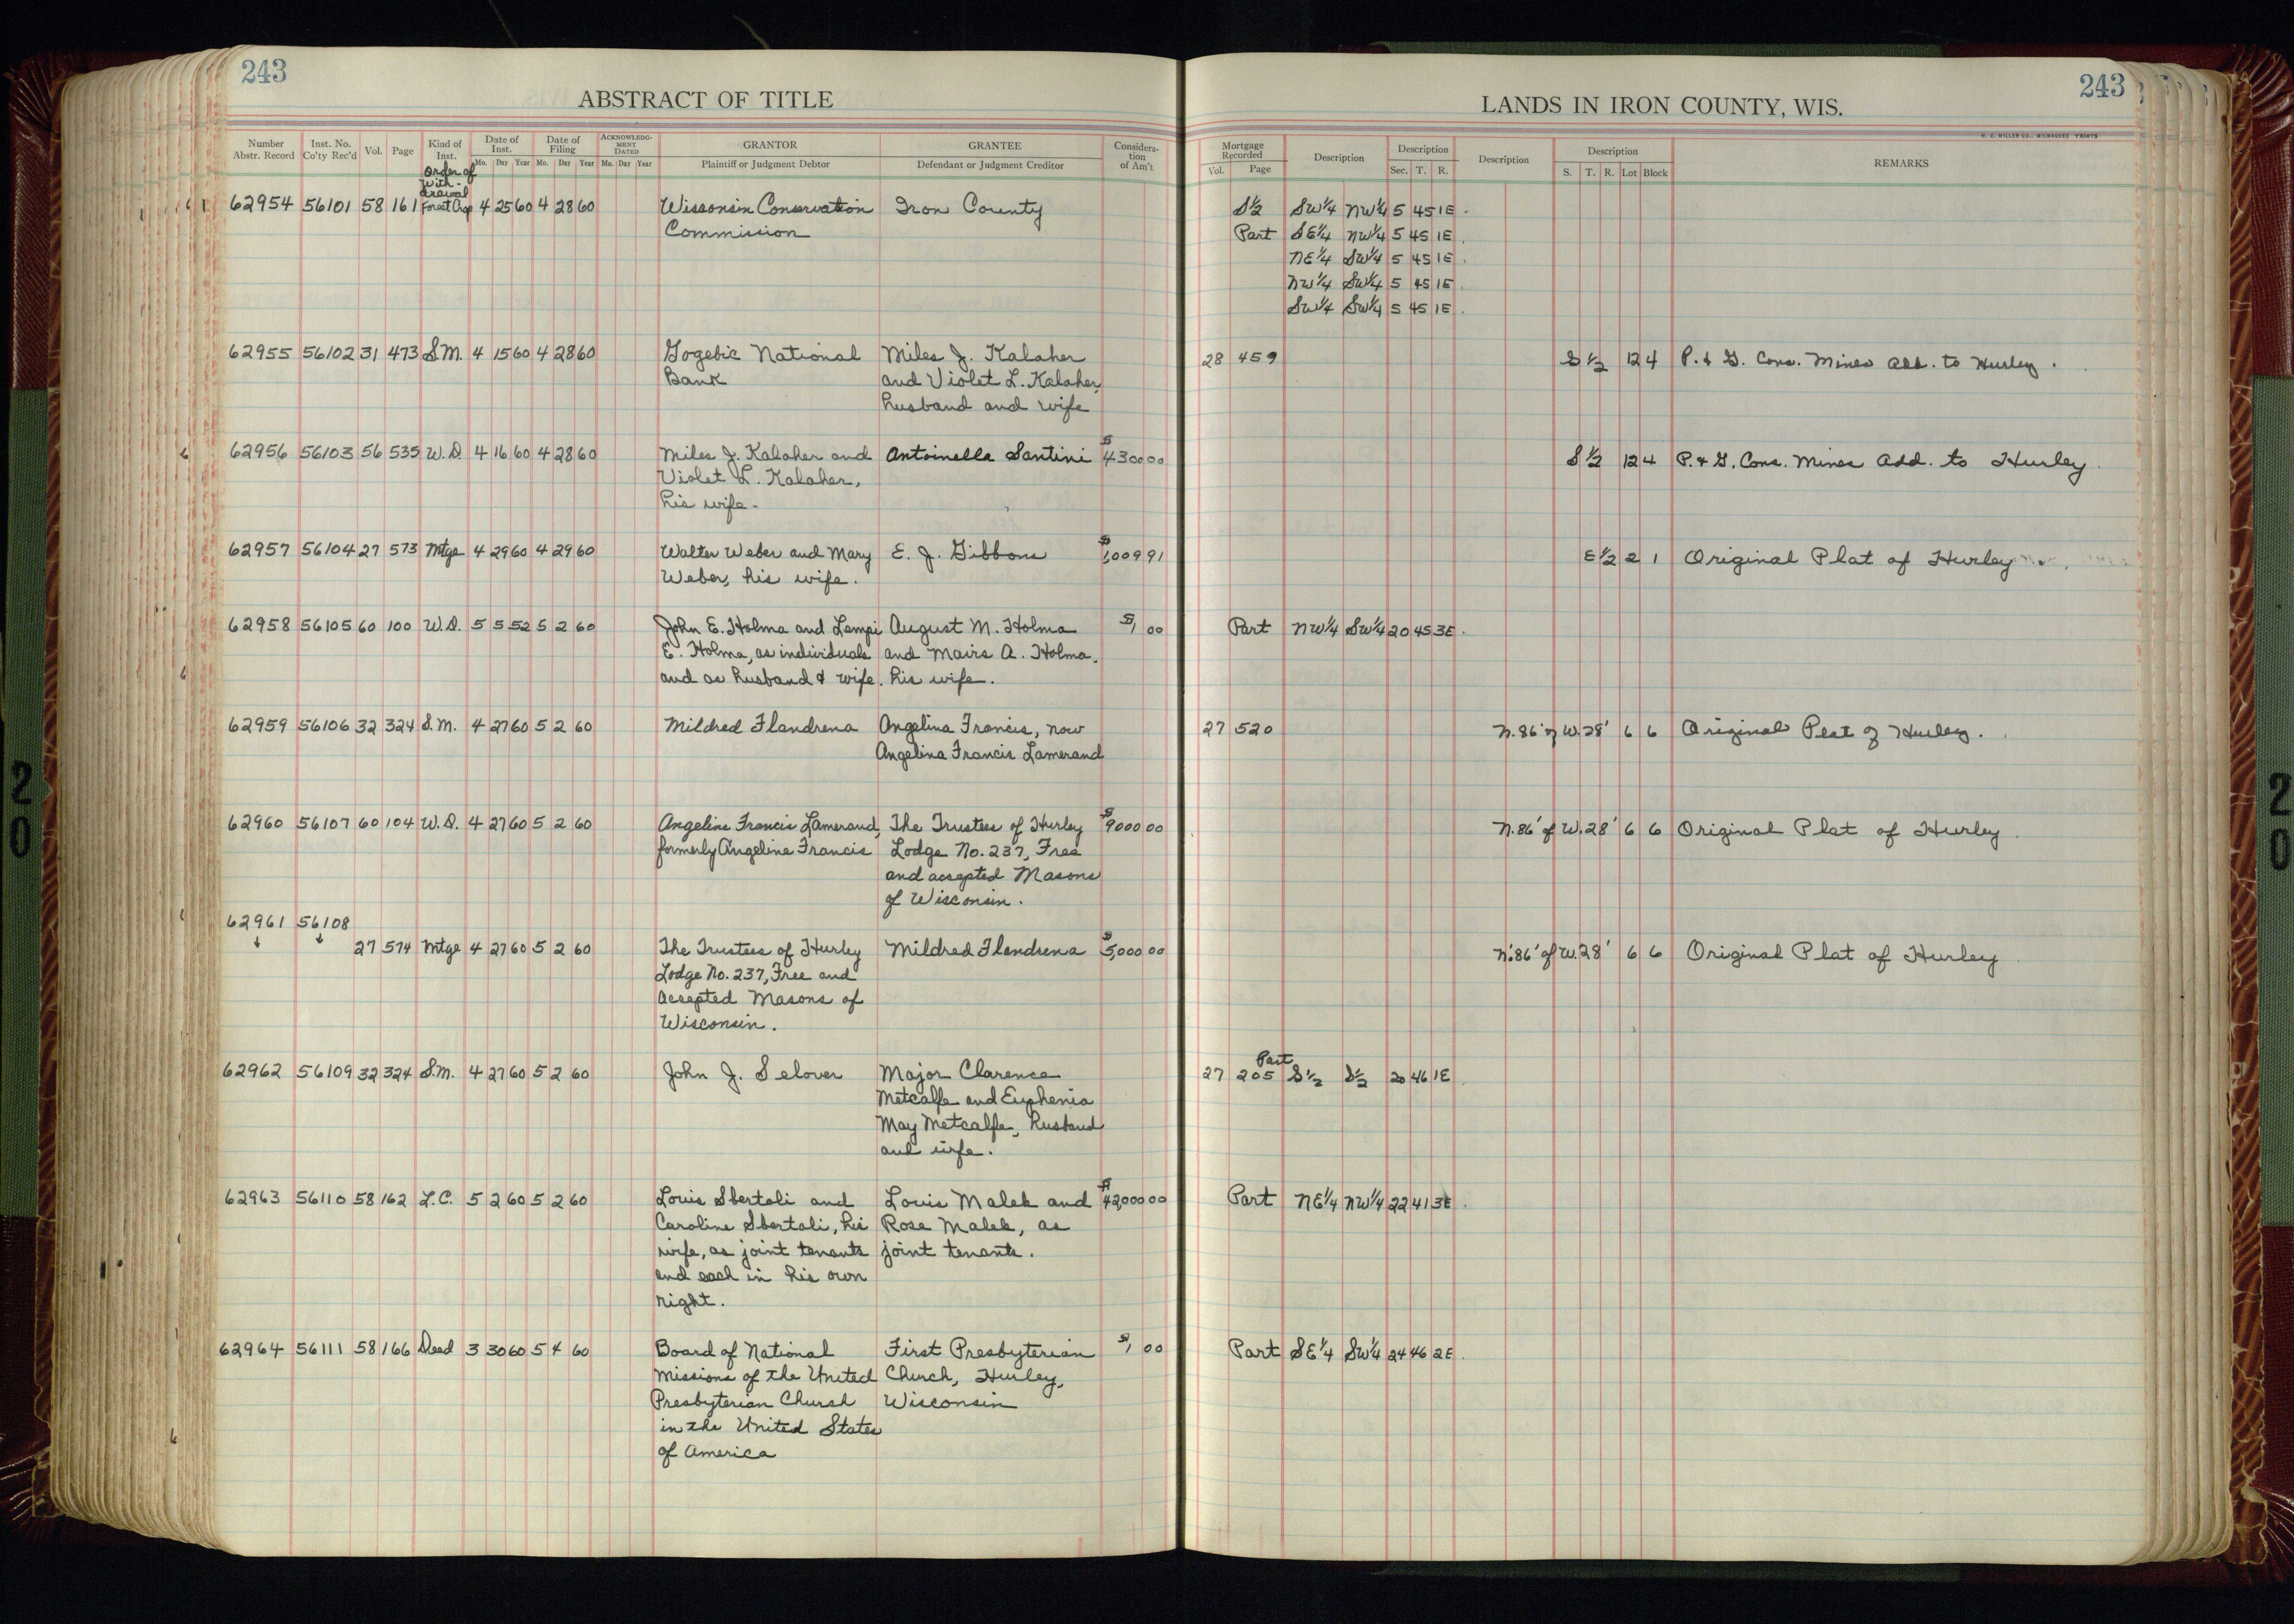 243
ABSTRACT OF TITLE
Number Abstr. Record | Inst. No. Co'ty Rec'd | Vol. | Page | Kind of Inst. | Date of Inst. Mo. Day Year | Date of Filing Mo. Day Year | ACKNOWLEDGMENT DATED Mo. Day Year | GRANTOR Plaintiff or Judgment Debtor | GRANTEE Defendant or Judgment Creditor | Consideration of Am't
Order of
With-
drawal
62954 56101 58 161 Forest Crop 4 25 60 4 28 60 Wisconsin Conservation Iron County
Commission
62955 56102 31 473 S.M. 4 15 60 4 28 60 Gogebic National Miles J. Kalaher
Bank and Violet L. Kalaher,
husband and wife
62956 56103 56 535 W.D. 4 16 60 4 28 60 Miles J. Kalaher and Antoinella Santini $4300 00
Violet L. Kalaher,
his wife.
62957 56104 27 573 Mtge 4 29 60 4 29 60 Walter Weber and Mary E. J. Gibbons $1,009 91
Weber, his wife.
62958 56105 60 100 W.D. 5 5 52 5 2 60 John E. Holma and Lempi August M. Holma $1 00
E. Holma, as individuals and Maire A. Holma,
and as husband & wife. his wife.
62959 56106 32 324 S.M. 4 27 60 5 2 60 Mildred Flandrena Angelina Francis, now
Angelina Francis Lamerand
62960 56107 60 104 W.D. 4 27 60 5 2 60 Angeline Francis Lamerand, The Trustees of Hurley $9000 00
formerly Angeline Francis Lodge No. 237, Free
and accepted Masons
of Wisconsin.
62961 56108
↓ ↓ 27 574 Mtge 4 27 60 5 2 60 The Trustees of Hurley Mildred Flandrena $5,000 00
Lodge No. 237, Free and
Accepted Masons of
Wisconsin.
62962 56109 32 324 S.M. 4 27 60 5 2 60 John J. Selover Major Clarence
Metcalfe and Euphenia
May Metcalfe, husband
and wife.
62963 56110 58 162 L.C. 5 2 60 5 2 60 Louis Sbertoli and Louis Malek and $42,000 00
Caroline Sbertoli, his Rose Malek, as
wife, as joint tenants joint tenants.
and each in his own
right.
62964 56111 58 166 Deed 3 30 60 5 4 60 Board of National First Presbyterian $1 00
Missions of the United Church, Hurley,
Presbyterian Church Wisconsin
in the United States
of America
243
LANDS IN IRON COUNTY, WIS.
H. C. MILLER CO., MILWAUKEE
Mortgage Recorded Vol. Page | Description | Description Sec. T. R. | Description | Description S. T. R. Lot Block | REMARKS
S½ SW¼ NW¼ 5 45 1E
Part SE¼ NW¼ 5 45 1E
NE¼ SW¼ 5 45 1E
NW¼ SW¼ 5 45 1E
SW¼ SW¼ 5 45 1E
28 459 S½ 12 4 P. & G. Cons. Mines Add. to Hurley.
S½ 12 4 P. & G. Cons. Mines Add. to Hurley
E½ 2 1 Original Plat of Hurley
Part NW¼ SW¼ 20 45 3E
27 520 N. 86' of W. 28' 6 6 Original Plat of Hurley.
N. 86' of W. 28' 6 6 Original Plat of Hurley
N. 86' of W. 28' 6 6 Original Plat of Hurley
Part
27 205 S½ S½ 20 46 1E
Part NE¼ NW¼ 22 41 3E
Part SE¼ SW¼ 24 46 2E
20
20